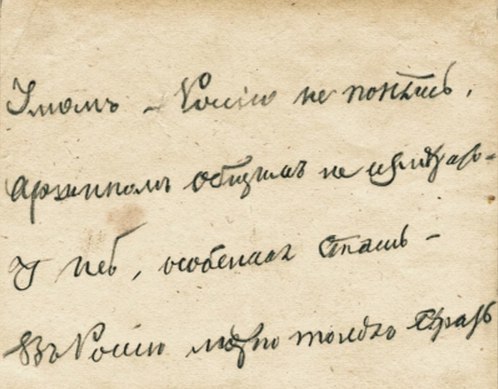 Умомъ — Россію не понять,
Аршиномъ общимъ не измѣрить
У ней, особенная стать —
Въ Россію можно только